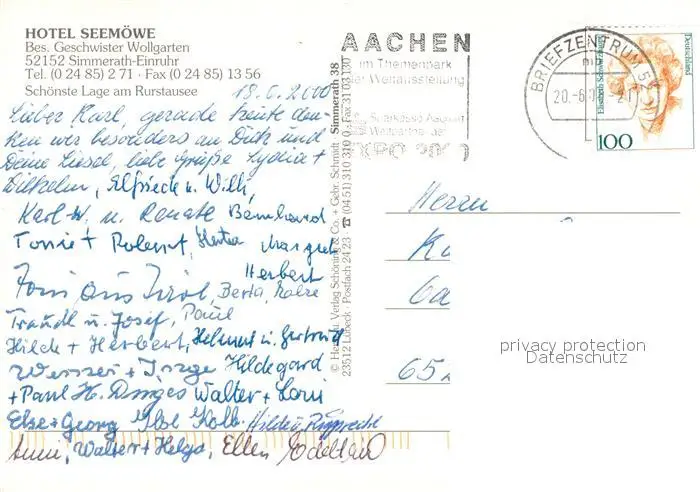 HOTEL SEEMÖWE
Bes. Geschwister Wollgarten
52152 Simmerath-Einruhr
Tel. (0 24 85) 2 71 · Fax (0 24 85) 13 56
Schönste Lage am Rurstausee
18.6.2000
Lieber Karl, gerade heute den-
ken wir besonders an Dich und
Deine Liesel, liebe Grüße Lydia +
Wilhelm, Elfriede u. Willi,
Karl-W. u. Renate Bernhard
Tonie + Robert, Herta Margret
Herbert
Toni aus Tirol, Berta,
Traudl u. Josef, Paul
Hilde + Herbert, Helmut u. Gertrud
Werner + Inge Hildegard
+ Paul H. Dinges Walter + Loni
Else + Georg Ilse Kolb. Hilde u. Ruprecht
Anni, Walter + Helga, Ellen
Verlag Schöning & Co. + Gebr. Schmidt
23512 Lübeck · Postfach 24 23 · ☎ (04 51) 310 3 10 Fax 31 03 130
Simmerath 38
AACHEN
im Themenpark
der Weltausstellung
Sparkasse Aachen
EXPO 2000
BRIEFZENTRUM 52
mi
20.-6.0
-21
Elisabeth Schwarzhaupt
Deutschland
100
Herrn
65
privacy protection
Datenschutz